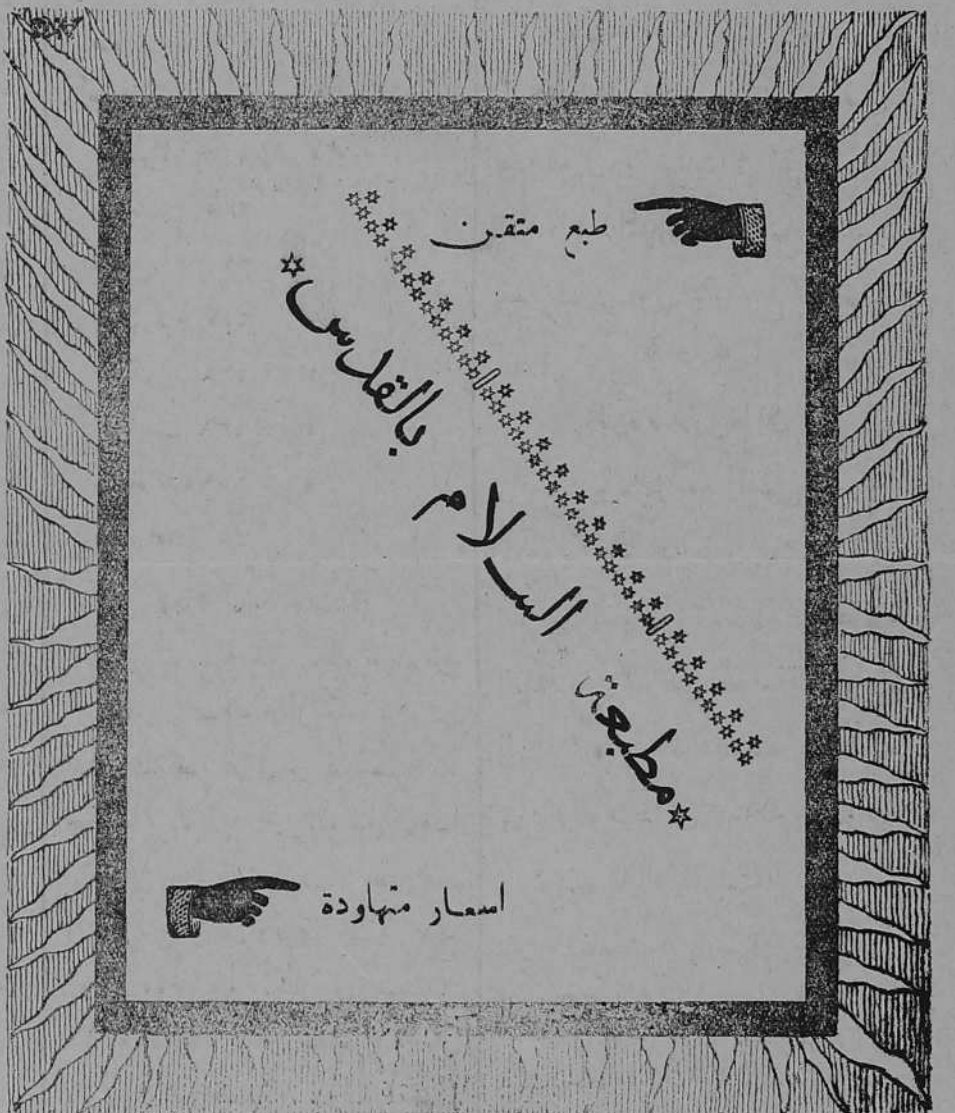 طبع متقن
مطبعة السلام بالقدس
اسعار متهاودة